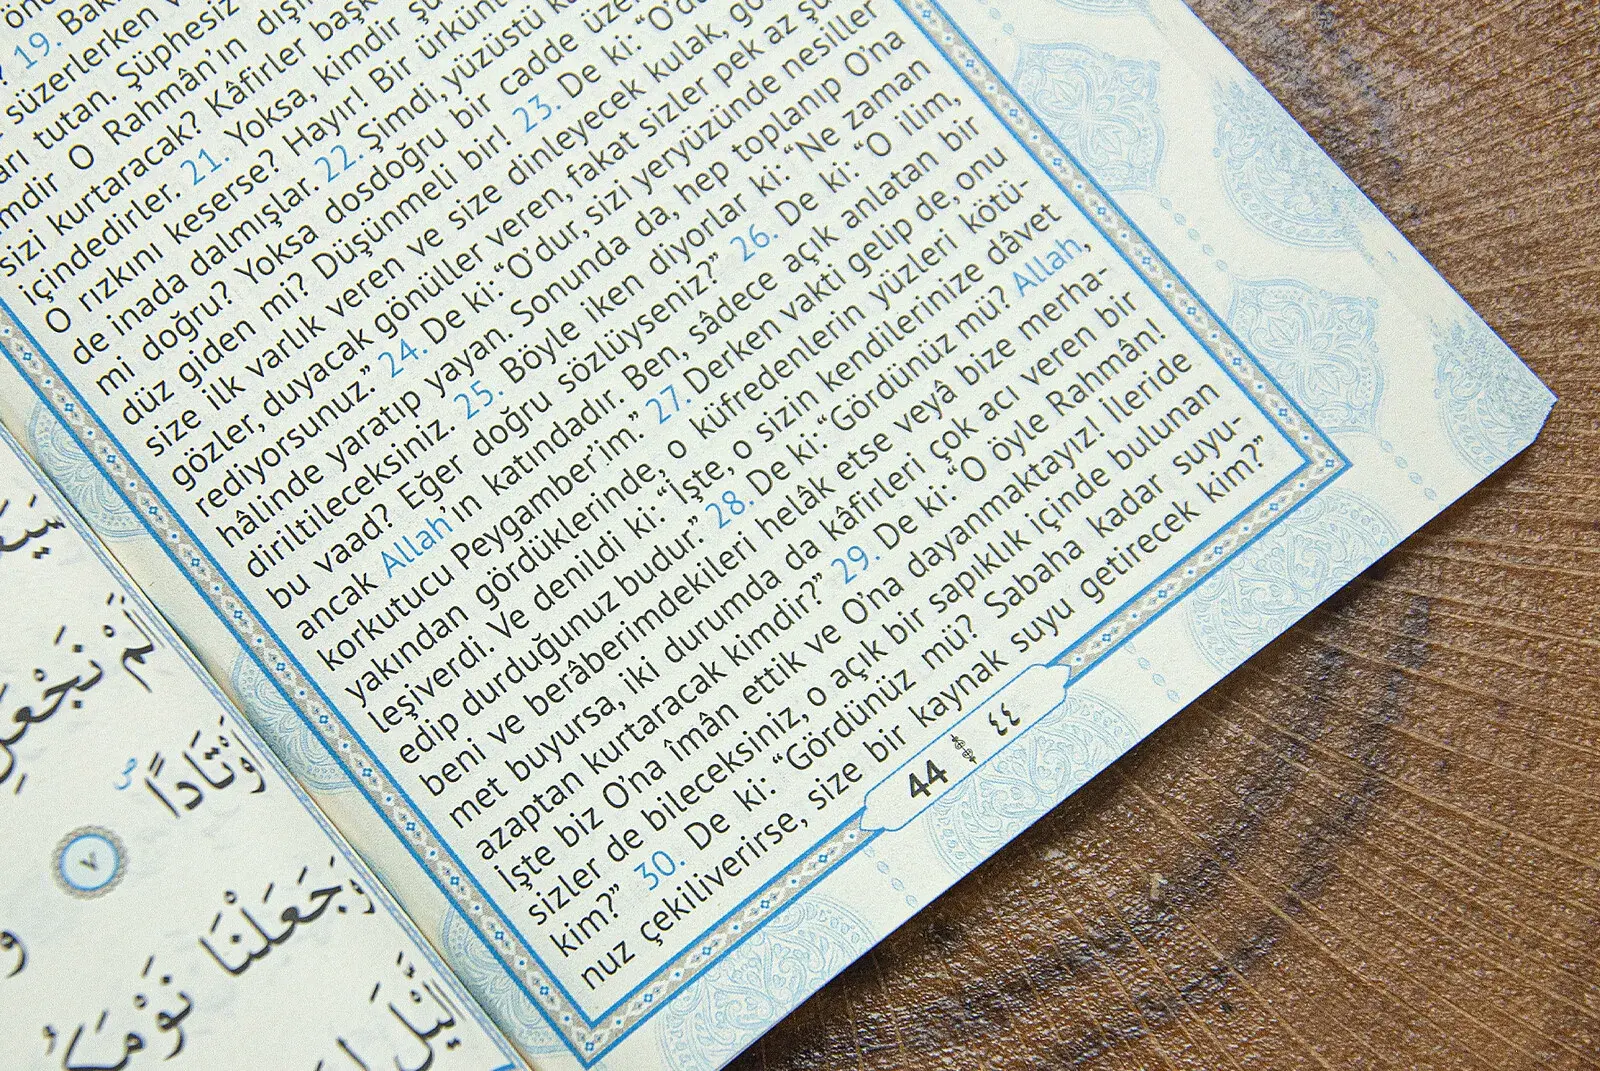 19.
süzerlerken
tutan. Şüphesiz
O Rahmân'ın
sizi kurtaracak? Kâfirler
içindedirler. 21. Yoksa, kimdir
O rızkını keserse? Hayır! Bir
de inada dalmışlar. 22. Şimdi, yüzüstü
mi doğru? Yoksa dosdoğru bir cadde
düz giden mi? Düşünmeli bir! 23. De ki:
size ilk varlık veren ve size dinleyecek kulak,
gözler, duyacak gönüller veren, fakat sizler pek az
rediyorsunuz.” 24. De ki: “O'dur, sizi yeryüzünde nesiller
hâlinde yaratıp yayan. Sonunda da, hep toplanıp O'na
diriltileceksiniz. 25. Böyle iken diyorlar ki: “Ne zaman
bu vaad? Eğer doğru sözlüyseniz?” 26. De ki: “O ilim,
ancak Allah'ın katındadır. Ben, sâdece açık anlatan bir
korkutucu Peygamber'im.” 27. Derken vakti gelip de, onu
yakından gördüklerinde, o küfredenlerin yüzleri kötü-
leşiverdi. Ve denildi ki: “İşte, o sizin kendilerinize dâvet
edip durduğunuz budur.” 28. De ki: “Gördünüz mü? Allah,
beni ve berâberimdekileri helâk etse veyâ bize merha-
met buyursa, iki durumda da kâfirleri çok acı veren bir
azaptan kurtaracak kimdir?” 29. De ki: “O öyle Rahmân!
İşte biz O'na îmân ettik ve O'na dayanmaktayız! İleride
sizler de bileceksiniz, o açık bir sapıklık içinde bulunan
kim?” 30. De ki: “Gördünüz mü? Sabaha kadar suyu-
nuz çekiliverirse, size bir kaynak suyu getirecek kim?”
44 ٤٤
اَلَمْ نَجْعَلِ
اَوْتَادًا ۙ
٧
وَجَعَلْنَا نَوْمَكُمْ